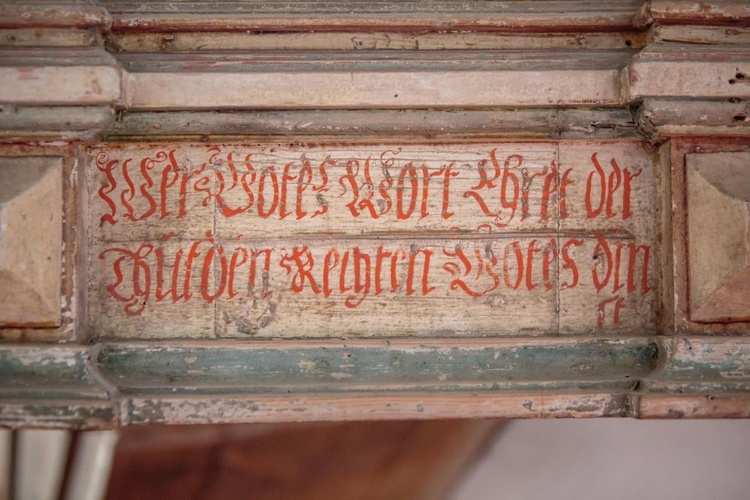 Wer Gotes Wort Ehret der
Thut den Rechten Gotes din
st